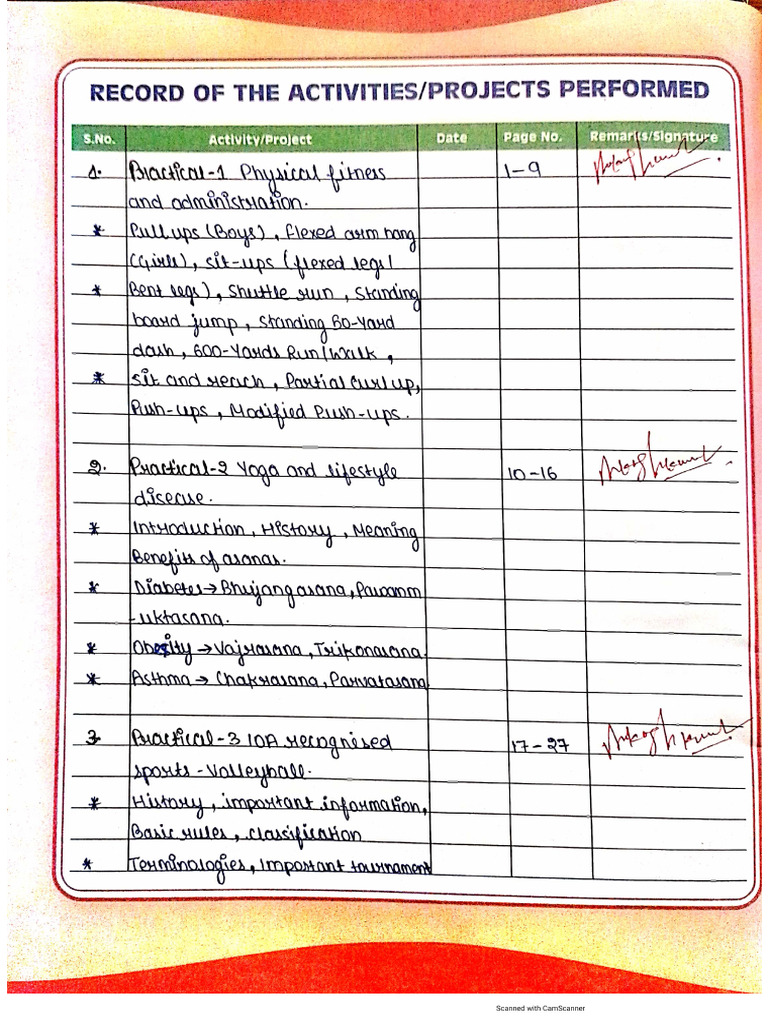 RECORD OF THE ACTIVITIES/PROJECTS PERFORMED
S.No. Activity/Project Date Page No. Remarks/Signature
1. Practical-1 Physical fitness 1-9
and administration.
* Pull ups (Boys), flexed arm hang
(Girls), sit-ups (flexed legs/
* Bent legs), Shuttle run, Standing
board jump, Standing 50-Yard
dash, 600-Yards Run/Walk,
* Sit and reach, Partial Curl up,
Push-ups, Modified Push-ups.
2. Practical-2 Yoga and lifestyle 10-16
disease.
* Introduction, History, Meaning
Benefits of asanas.
* Diabetes→Bhujangasana, Pawanm
-uktasana.
* Obesity→Vajrasana, Trikonasana.
* Asthma→Chakrasana, Parvatasana
3. Practical-3 IOA recognised 17-27
sports-Volleyball.
* History, important information,
Basic rules, classification
* Terminologies, Important tournament
Scanned with CamScanner